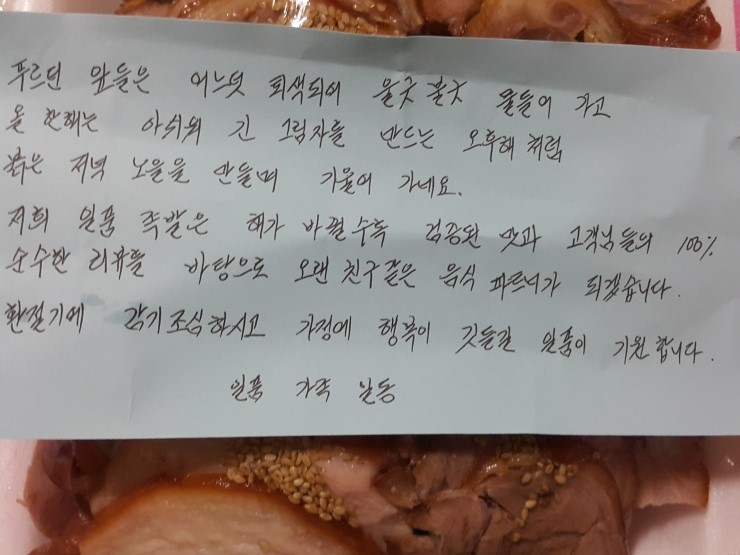 푸르던 잎들은 어느덧 퇴색되어 울긋 불긋 물들어 가고
올 한해는 아쉬워 긴 그림자를 만드는 오후해 처럼
붉은 저녁 노을을 만들며 기울어 가네요.
저희 일품 족발은 해가 바뀔수록 검증된 맛과 고객님들의 100%
순수한 리뷰를 바탕으로 오랜 친구같은 음식 파트너가 되겠습니다.
환절기에 감기조심하시고 가정에 행복이 깃들길 일품이 기원합니다.
일품 가족 일동